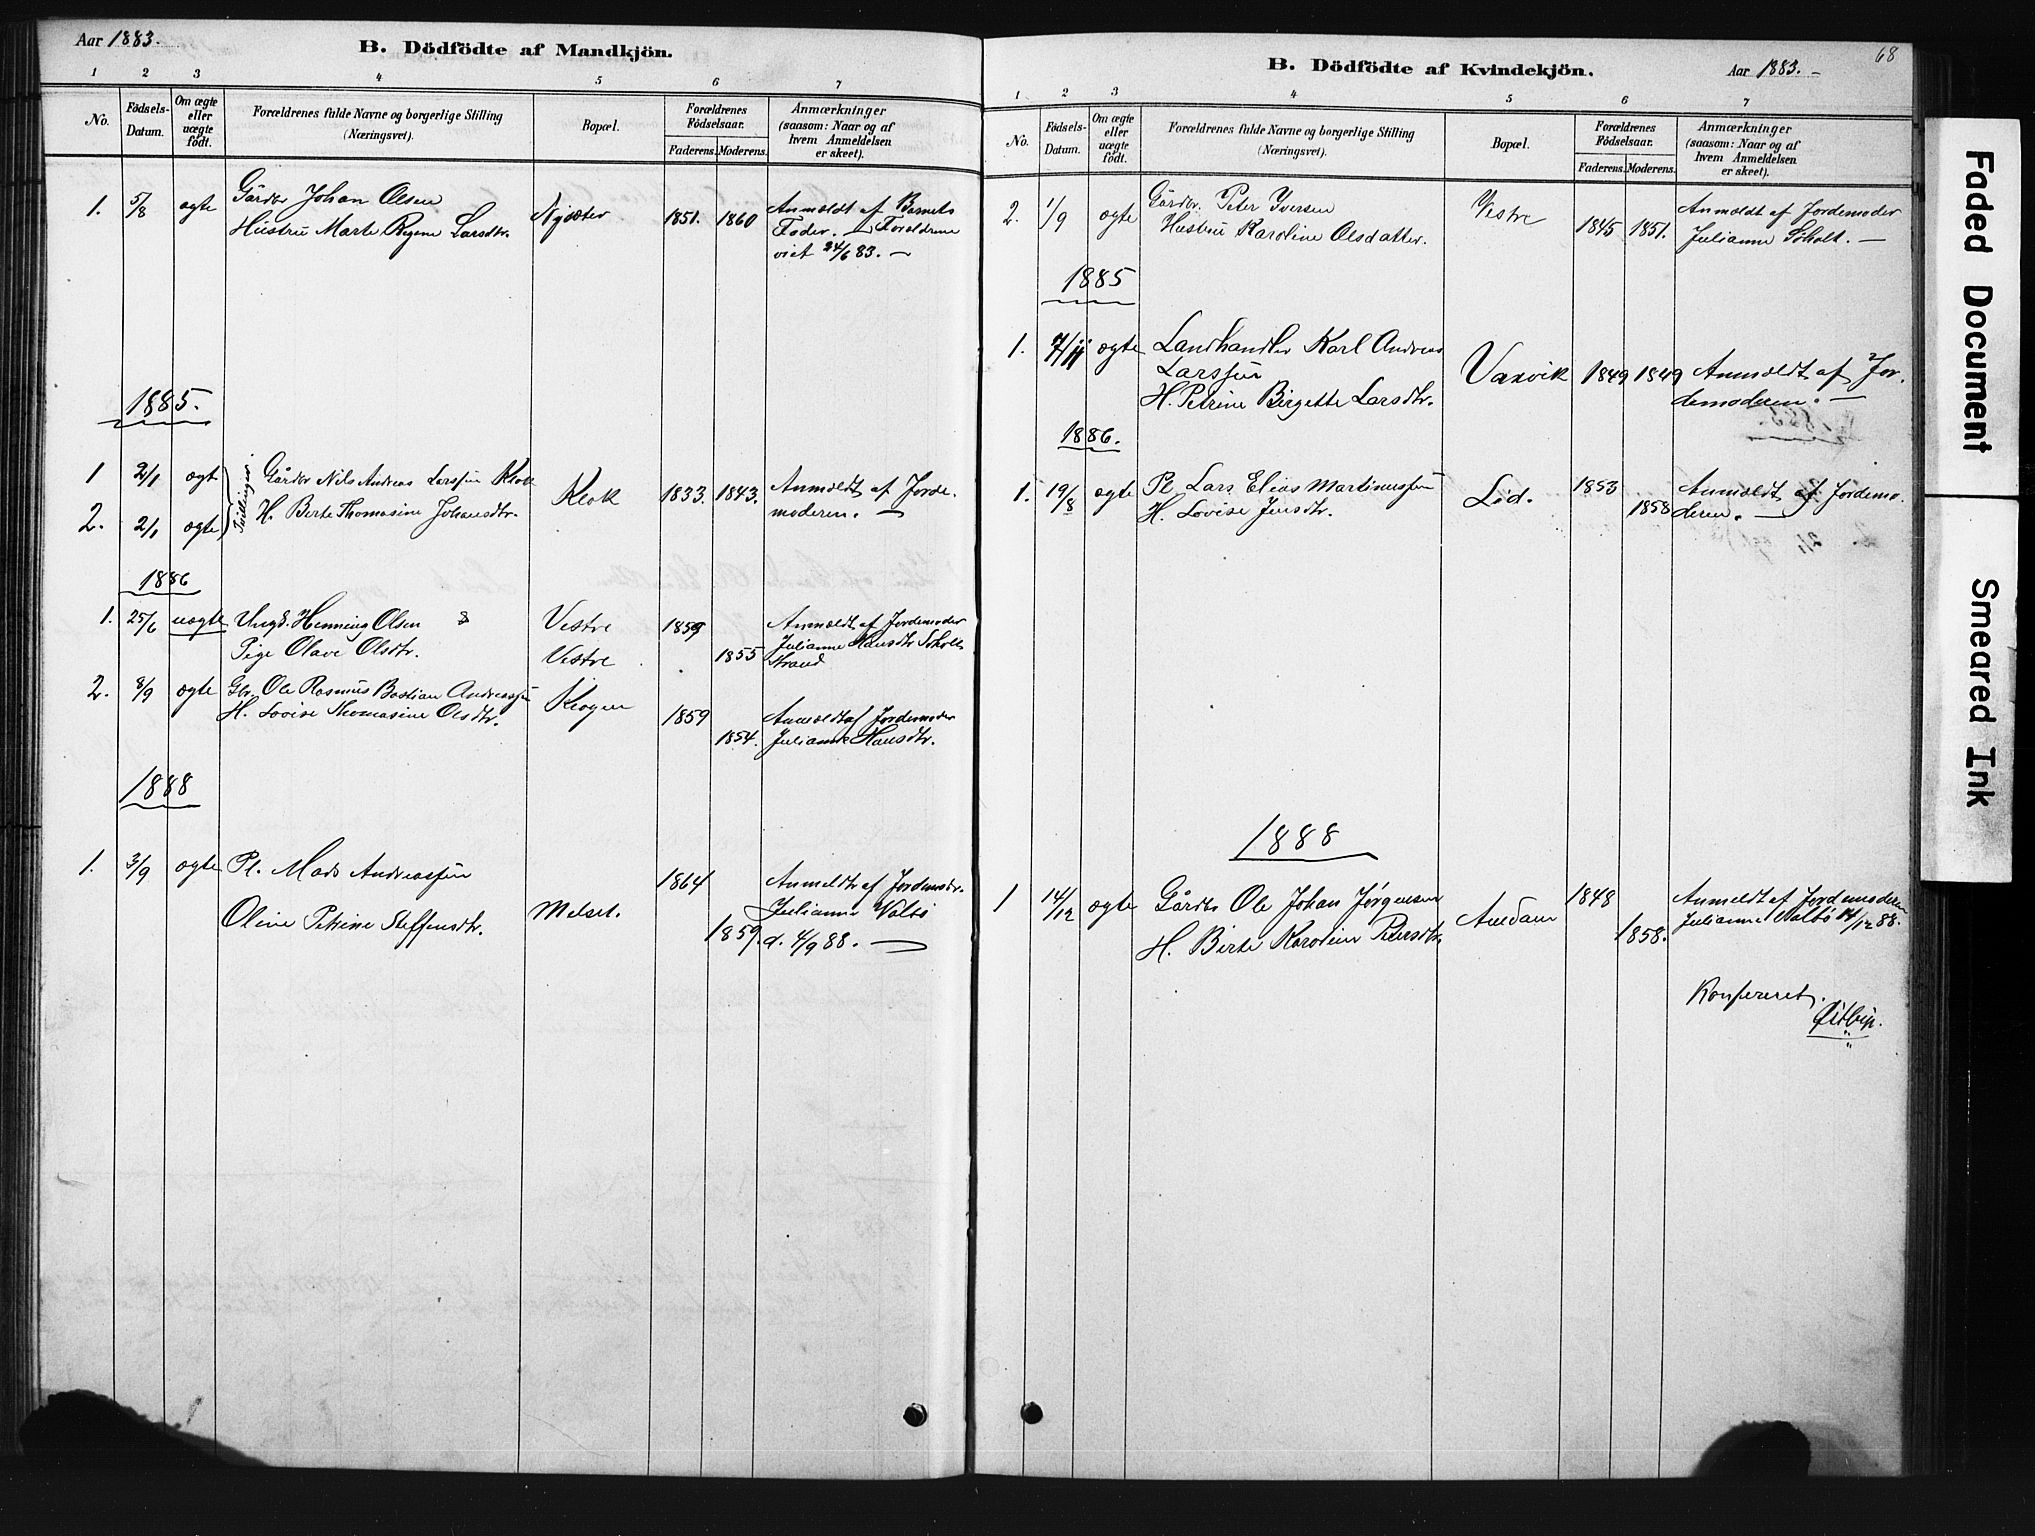 Aar 1883.
B. Dödfödte af Mandkjön.
1 2 3 4 5 6 7
No.
Födsels-Datum.
Om ægte eller uægte födt.
Forældrenes fulde Navne og borgerlige Stilling (Næringsvei).
Bopæl.
Forældrenes Födselsaar.
Faderens. Moderens.
Anmærkninger (saasom: Naar og af hvem Anmeldelsen er skeet).
1. 5/8 ægte Gårdbr Johan Olsen
Hustru Marte Regine Larsdtr. 1851. 1860
Anmeldt af Barnets
Fader. — Forældrene
viet 24/6 83. —
1885.
1 2/1 ægt Gårdbr Nils Andreas Larssøn Klok
2. 2/1 ægte H. Berte Thomasine Johansdtr. Klok 1833. 1843.
Tvillinger
Anmeldt af Jorde-
moderen. —
1886
1. 25/6 uægte Ungk. Henning Olsen & Vestre 1859
Pige Olave Olsdtr. Vestre 1855
Anmeldt af Jordemoder
Julianne Hansdtr Soholt
Strand
2. 8/9 ægte Gbr. Ole Rasmus Bastian Andreassøn
H. Lovise Thomasine Olsdtr. Krogen 1859
1854.
Anmeldt af Jordemoder
Julianne Hansdtr.
1888
1. 3/9 ægte Pl. Mads Andreassøn 1864
Oline Petrine Steffensdtr. Melset. 1859.
Anmeldt af Jordemdr.
Julianne Valbö
d. 4/9 88. —
68
B. Dödfödte af Kvindekjön.
Aar 1883. -
1 2 3 4 5 6 7
No.
Födsels-Datum.
Om ægte eller uægte födt.
Forældrenes fulde Navne og borgerlige Stilling (Næringsvei).
Bopæl.
Forældrenes Födselsaar.
Faderens. Moderens.
Anmærkninger (saasom: Naar og af hvem Anmeldelsen er skeet).
2. 1/9 ægte Gårdbr. Peter Iversen Vestre
Hustru Karoline Olsdatter. 1845 1851.
Anmeldt af Jordemoder
Julianne Soholt. —
1885
1. 7/11 ægte Landhandler Karl Andreas
Larssøn
H. Petrine Birgette Larsdtr. Vaxvik 1849 1849
Anmeldt af Jor-
demoderen. —
1886.
1. 19/8 ægte Pl. Lars Elias Martinussøn
H. Lovise Jensdtr. Lid. 1853
1858
Anmeldt af Jordemo-
deren. —
1888
1 14/12 ægte Gårdbr Ole Johan Jørgensen
H. Birte Karoline Petersdtr. Amdam 1848
1858.
Anmeldt af Jordemoderen
Julianne Valbö 14/12 88.
Konfereret.
Faded Document
Smeared Ink